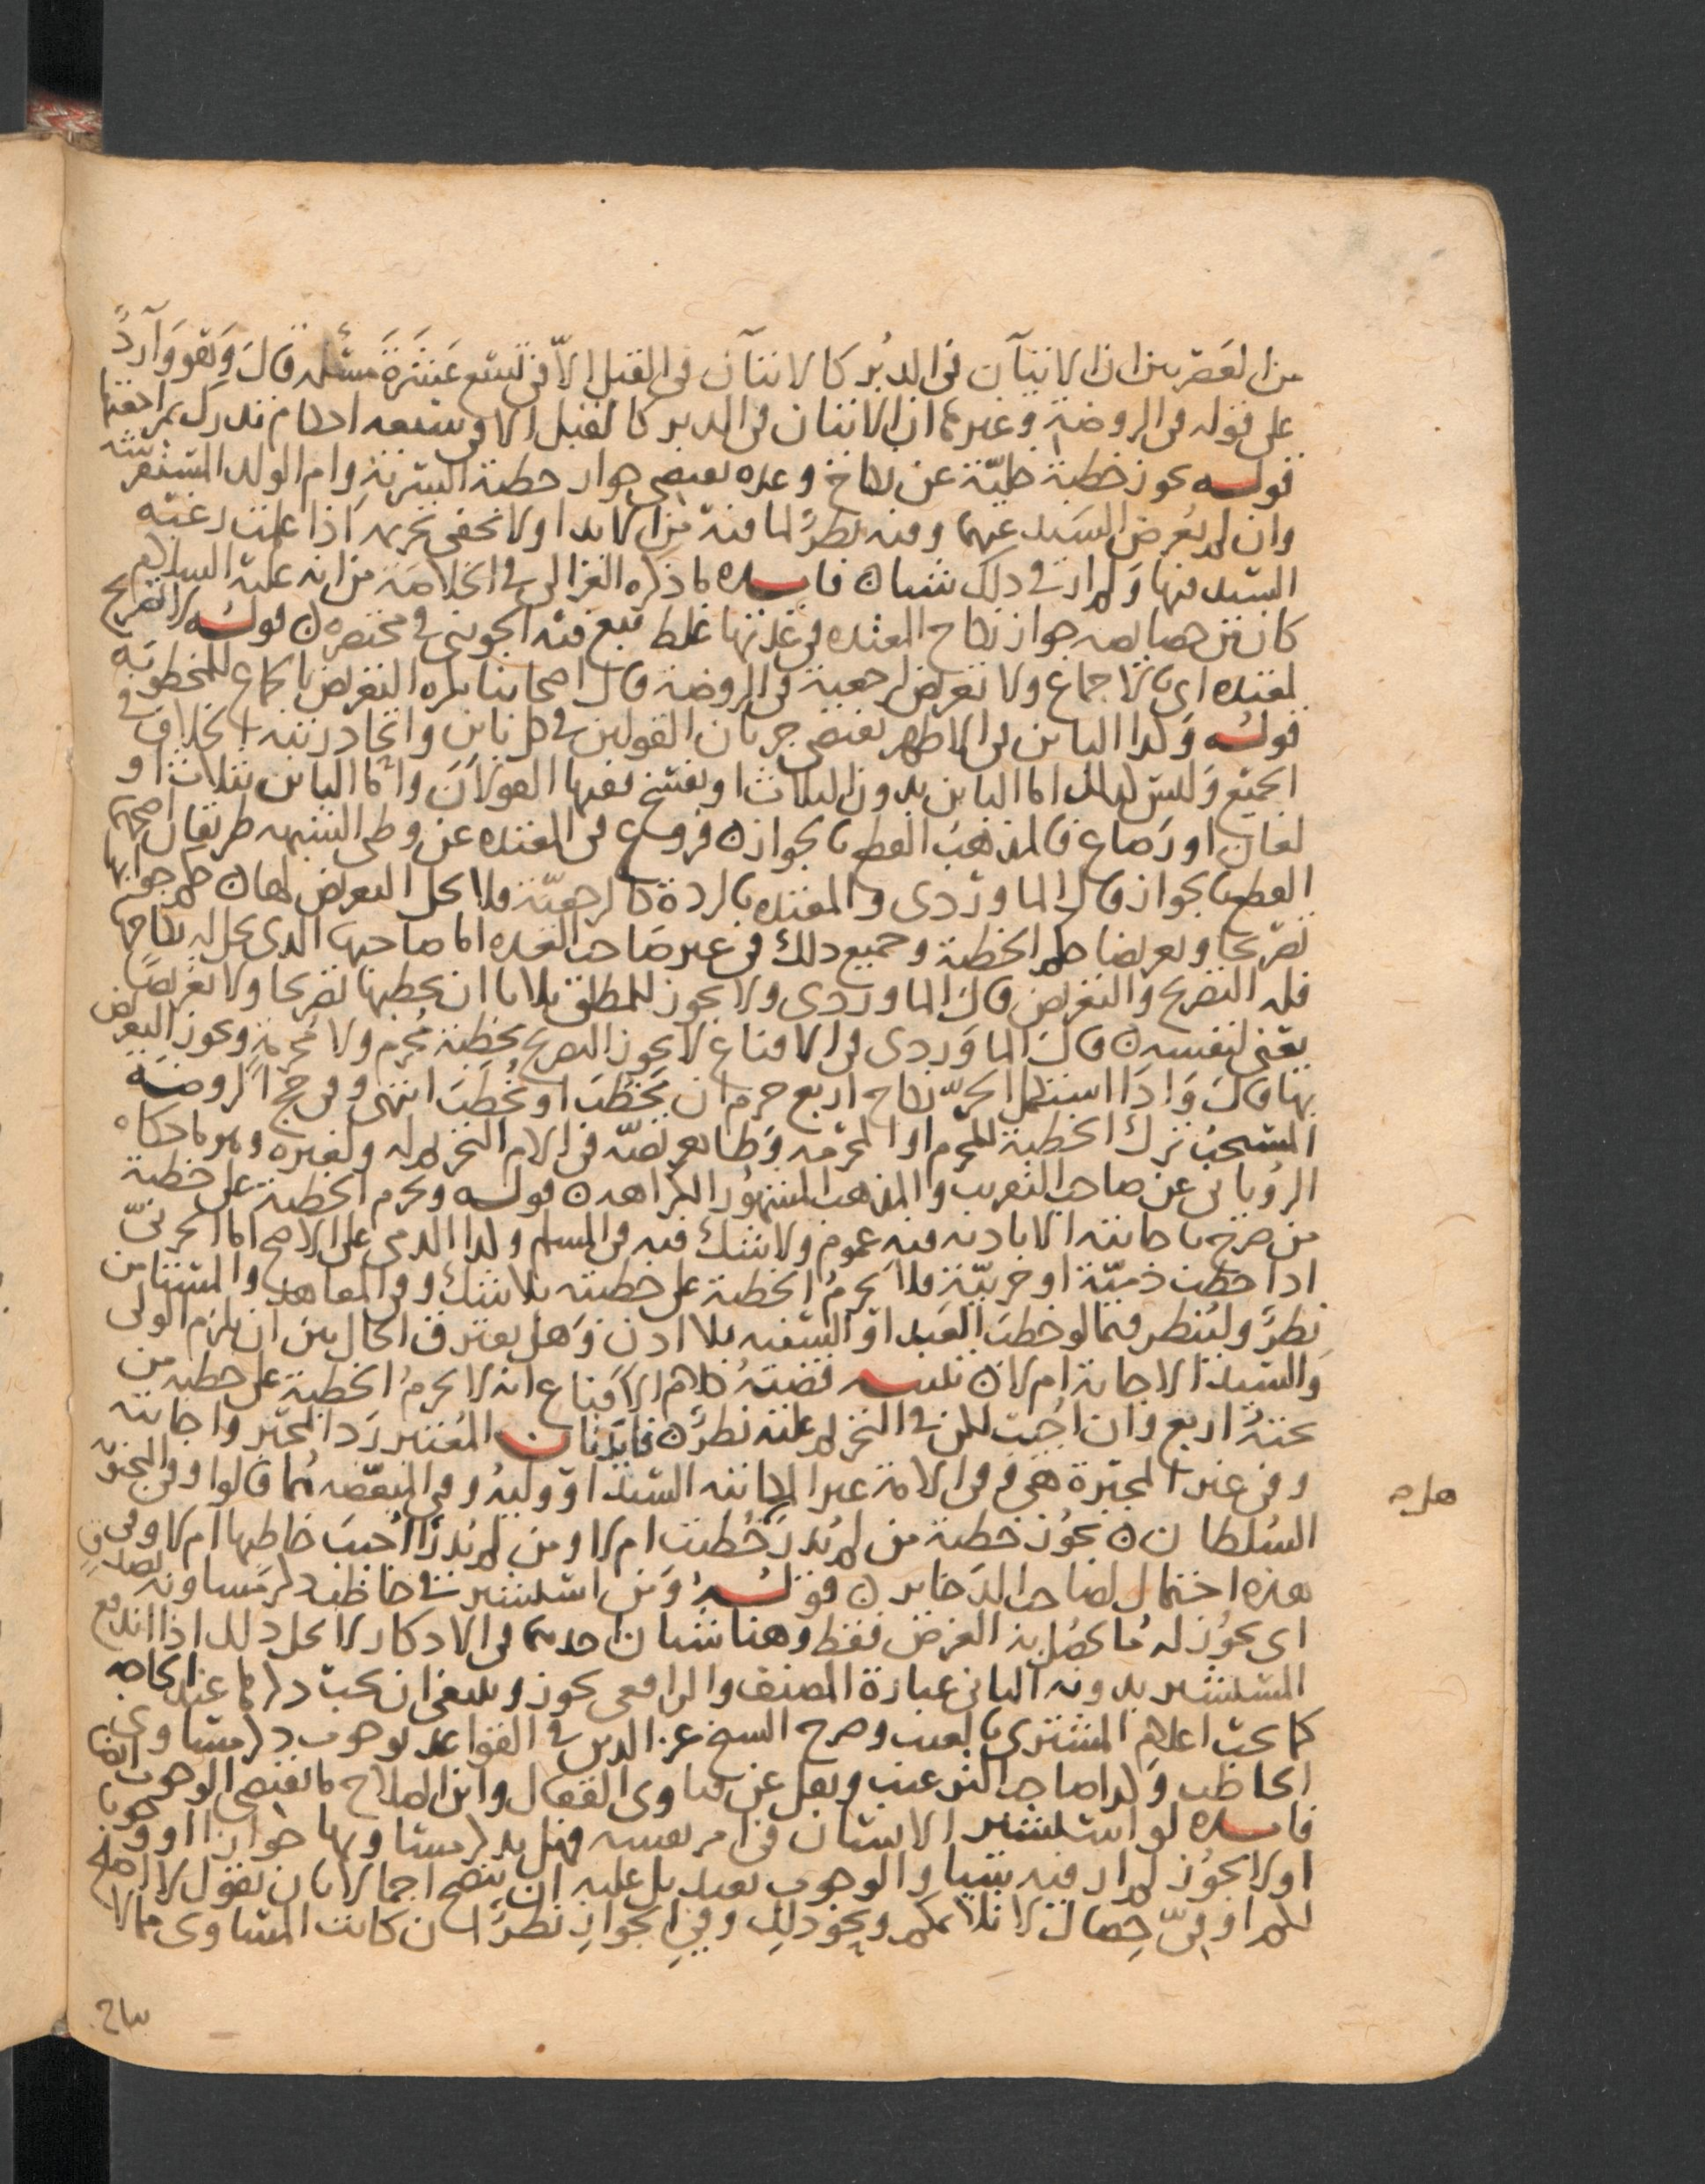 من العصريين ان الاتيان في الدبر كالاتيان في القبل الا في تسع عشرة مسئله قال وهو وارد
على قوله في الروضة وغيرها ان الاتيان في الدبر كالقبل الا في سبعه احكام تدرك بمراجعتها
قوله تحوز خطبة خلية عن نكاح وعده يقتضي جواز خطبة السرية وام الولد المستفرشه
وان لم يعرض السيد عنهما وفيه نظر لما فيه من الايذا ولا يخفى تحريمه اذا علمت رغبته
السيد فيها ولم ار في ذلك شيا ن فايده ما ذكره الغزالي في الخلاصة من انه عليه السلام
كان من خصايصه جواز نكاح المعتده في عدتها غلط تبع فيه الجويني في مختصره ن قوله لا تصريح
لمعتده اي بالاجماع ولا تعريض لرجعية في الروضة قال اصحابنا يكره التعريض بالجماع للمخطوبه
قوله وكذا البائن في الاظهر يقتضي جريان القولين في كل بائن واتحاد رتبة الخلاف في
الجميع وليس كذلك اما البائن بدون الثلاث او بفسخ ففيها القولان واما البائن بثلاث او
لعان او رضاع فالمذهب القطع بالجواز ن فروع في المعتده عن وطي الشبهه طريقان اصحهما
القطع بالجواز قال الماوردي والمعتده بالردة كالرجعية فلا يحل التعريض لها ن حكم جوابها
تصريحا وتعريضا حكم الخطبة وجميع ذلك في غير صاحب العده اما صاحبها الذي يحل له نكاحها
فله التصريح والتعريض قال الماوردي ولا يجوز للمطلق ثلاثا ان يخطبها تصريحا ولا تعريضا
يعني لنفسه ن قال الماوردي في الاقناع لا يجوز التصريح بخطبة محرم ولا محرمة ويجوز التعريض
بها قال واذا استكمل الحر نكاح اربع حرم ان يخطب او يخطب انتهى وفي حج الروضه
المستحب ترك الخطبة للمحرم او المحرمه وظاهر نصه في الام التحريم له ولغيره وهو ما حكاه
الروياني عن صاحب التقريب والمذهب المشهور الكراهه ن قوله وتحرم الخطبة على خطبة
من صرح باجابته الا باذنه فيه عموم ولا شك فيه في المسلم وكذا الذمي على الاصح اما الحربي
اذا خطب ذمية او حربية فلا تحرم الخطبة على خطبته بلا شك وفي المعاهد والمستامن
نظر ولينظر فيما لو خطب العبد او السفيه بلا اذن وهل يفترق الحال بين ان يلزم الولي
والسيد الاجابة ام لا ن تنبيه قضية كلام الاقناع انه لا تحرم الخطبة على خطبة من
تحته اربع وان اجيب لكن في التحريم عليه نظر ن فايدتان المعتبر رد المجبر واجابته
وفي غير المجبرة هي وفي الامة غير المكاتبه السيد او وليه وفي المبعضه هما قالوا وفي المجنونة
السلطان ن يجوز خطبة من لم يدر خطبت ام لا ومن لم يدر اجيب خاطبها ام لا وفي
هذه احتمال لصاحب الذخاير ن قوله ومن استشير في خاطب ذكر مساويه بصدق
اي يجوز له ما يحصل به الغرض فقط وهنا شيان احدهما في الاذكار لا يحل ذلك اذا اندفع
المستشير بدونه الثاني عبارة المصنف والرافعي يجوز وينبغي ان يجب ذكرها عند الحاجه
كما يجب اعلام المشتري بالعيب وصرح الشيخ عز الدين في القواعد بوجوب ذكر مساوي
الخاطب وكذا صاحب الترغيب ونقل عن فتاوى القفال وابن الصلاح ما يقتضي الوجوب ايضا
فايده لو استشير الانسان في امر نفسه فهل يذكر مساويها جوازا او وجوبا
او لا يجوز لم ار فيه شيا والوجوب بعيد بل عليه ان ينصح اجمالا بان يقول لا اصلح
لكم او في خصال لا تلائمكم ونحو ذلك وفي الجواز نظر ان كانت المساوي مما لا
هذه
يباح